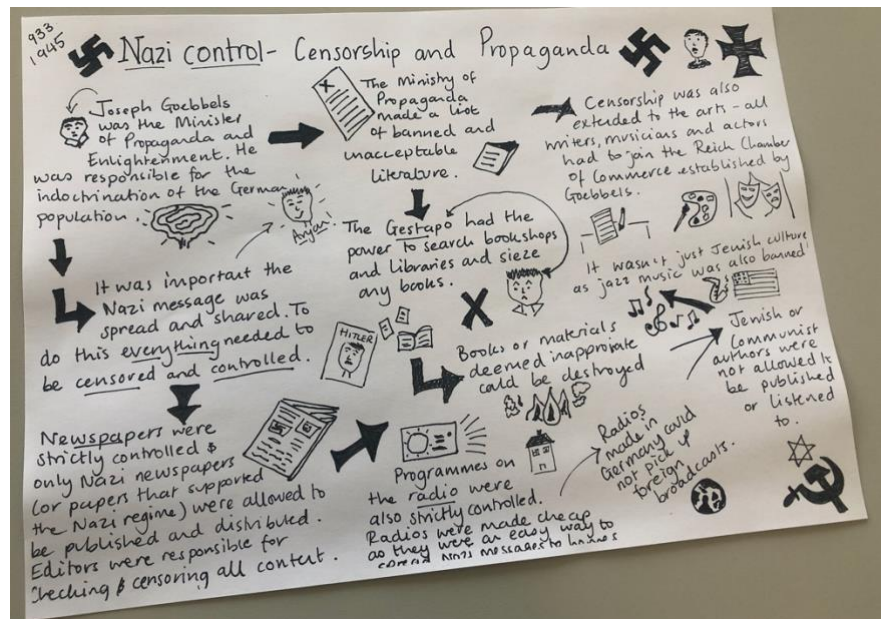 933
1945
Nazi control - Censorship and Propaganda
Joseph Goebbels
was the Minister
of Propaganda and
Enlightenment. He
was responsible for the
indoctrination of the German
population.
Aryan
It was important the
Nazi message was
spread and shared. To
do this everything needed to
be censored and controlled.
Newspapers were
strictly controlled &
only Nazi newspapers
(or papers that supported
the Nazi regime) were allowed to
be published and distributed.
Editors were responsible for
checking & censoring all content.
The Ministry of
Propaganda
made a list
of banned and
unacceptable
literature.
The Gestapo had the
power to search bookshops
and libraries and sieze
any books.
HITLER
Books or materials
deemed inapproiate
could be destroyed
Programmes on
the radio were
also strictly controlled.
Radios were made cheap
as they were an easy way to
spread Nazi messages to homes
Radios
made in
Germany could
not pick up
foreign
broadcasts.
Censorship was also
extended to the arts - all
writers, musicians and actors
had to join the Reich Chamber
of Commerce established by
Goebbels.
It wasn't just Jewish culture
as jazz music was also banned
Jewish or
Communist
authors were
not allowed to
be published
or listened
to.